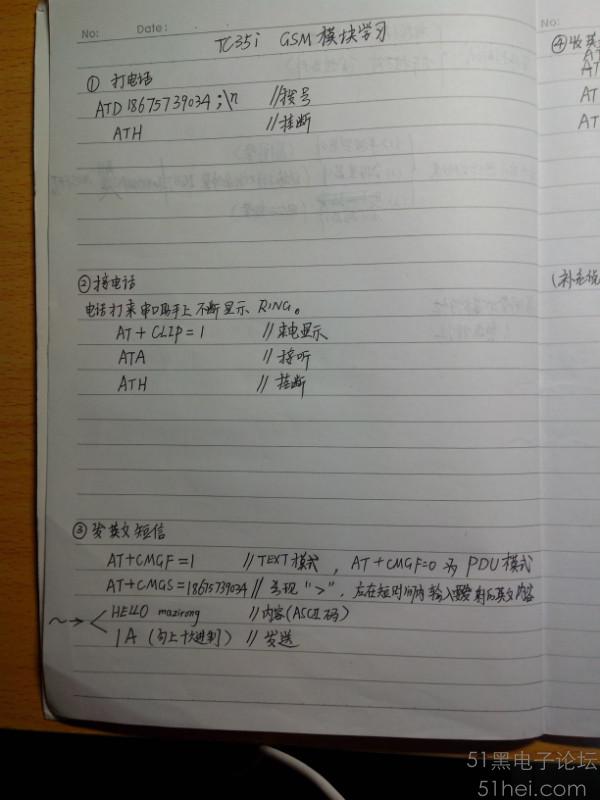 No:
Date:
TC35i GSM 模块学习
① 打电话
ATD 18675739034 ;\n //拨号
ATH //挂断
② 接电话
电话打来串口助手上不断显示 RING。
AT + CLIP = 1 //来电显示
ATA //接听
ATH //挂断
③ 发英文短信
AT+CMGF=1 //TEXT模式, AT+CMGF=0 为 PDU模式
AT+CMGS=18675739034 //出现 ">", 应在短时间内输入要发射的英文内容
HELLO mazirong //内容(ASCII码)
1A (勾上十六进制) //发送
No:
④ 收英
AT
AT
AT
AT
(补充说
51黑电子论坛
51hei.com